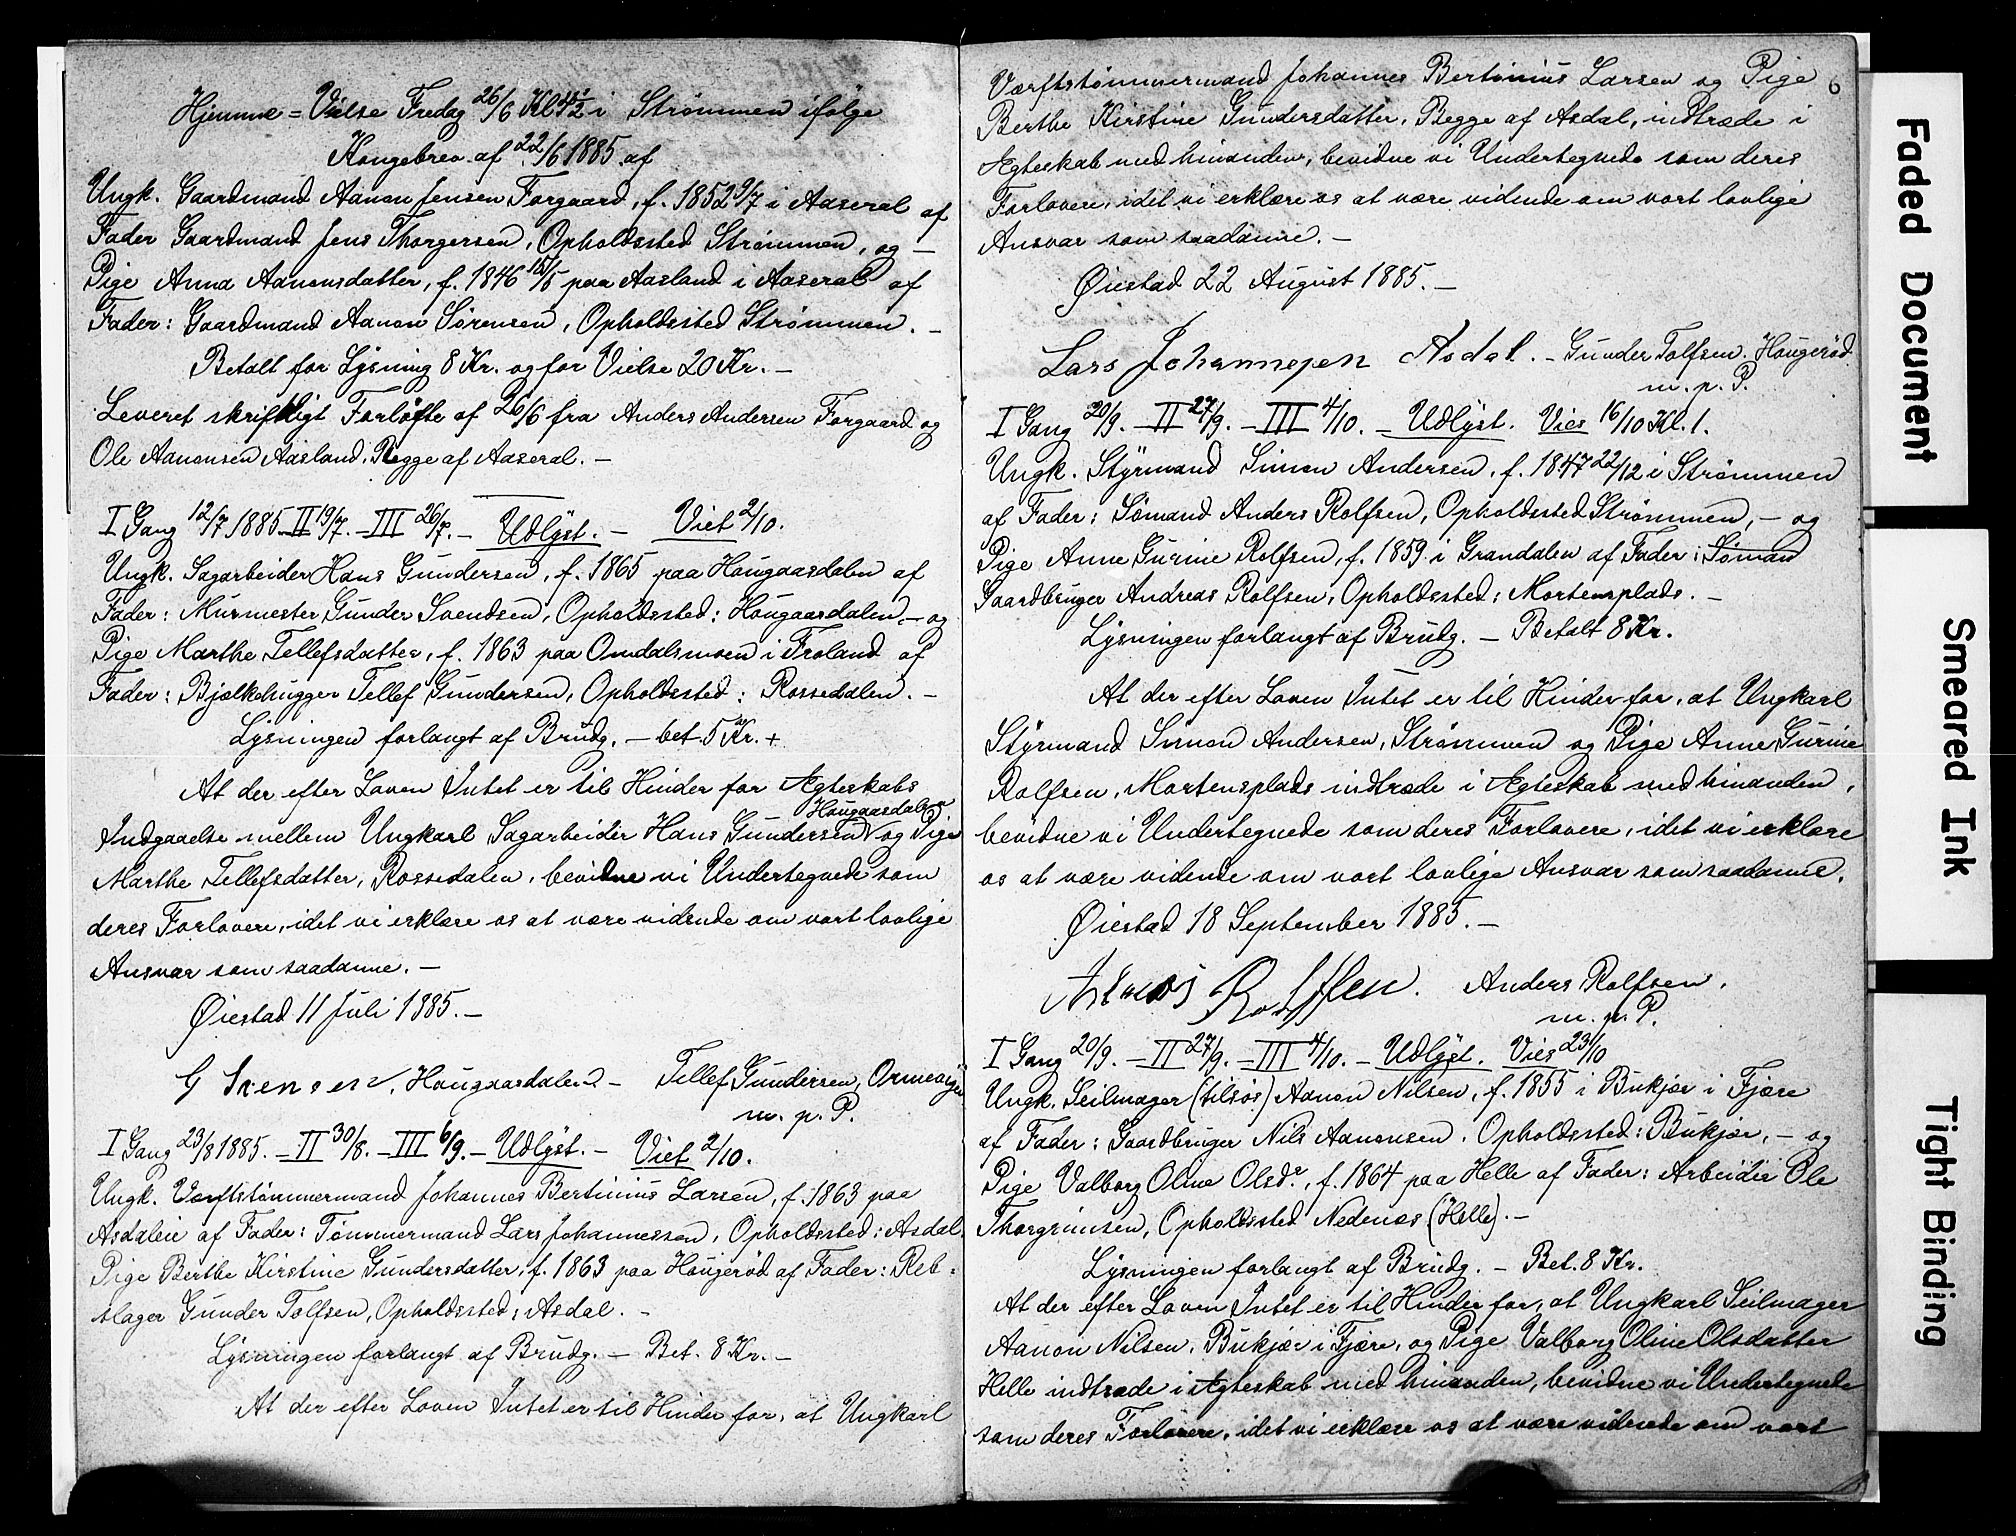 Hjemme=Vielse Fredag 26/6 Kl 4½ i Strømmen ifølge
Kongebrev af 22/6 1885 af
Ungk. Gaardmand Aanon Jensen Forgaard, f. 1852 9/7 i Aaseral af
Fader Gaardmand Jens Thorgersen, Opholdssted Strømmen, og –
Pige Anna Aanonsdatter, f. 1846 15/5 paa Aasland i Aaseral af
Fader: Gaardmand Aanon Sørensen, Opholdssted Strømmen. –
Betalt for Lysning 8 Kr. og for Vielse 20 Kr. –
Leveret skriftligt Forløfte af 26/6 fra Anders Andersen Forgaard og
Ole Aanonsen Aasland, Begge af Aaseral. –
I Gang 12/7 1885 – II 19/7. – III 26/7. – Udlyst. – Viet 2/10.
Ungk. Sagarbeider Hans Gundersen, f. 1865 paa Hougaasdalen af
Fader: Murmester Gunder Svendsen, Opholdssted: Hougaasdalen, – og
Pige Marthe Tellefsdatter, f. 1863 paa Omdalsmoen i Froland af
Fader: Bjelkehugger Tellef Gundersen, Opholdssted: Rossedalen. –
Lysningen forlangt af Brudg. – bet. 5 Kr. +
At der efter Loven Intet er til Hinder for Ægteskabs
Hougaasdalen
Indgaaelse mellem Ungkarl Sagarbeider Hans Gundersen og Pige
Marthe Tellefsdatter, Rossedalen, bevidne vi Undertegnede som
deres Forlovere, idet vi erklære os at være vidende om vort lovlige
Ansvar som saadanne. –
Øiestad 11 Juli 1885. –
G Svensen, Hougaasdalen – Tellef Gundersen, Ormevigen
m. p. P.
I Gang 23/8 1885. – II 30/8. – III 6/9. – Udlyst. – Viet 2/10.
Ungk. Verftstømmermand Johannes Bertinius Larsen, f. 1863 paa
Asdalen af Fader: Tømmermand Lars Johannessen, Opholdssted: Asdal
Pige Berthe Kirstine Gundersdatter, f. 1863 paa Hougerød af Fader: Reb-
slager Gunder Tolfsen, Opholdssted: Asdal. –
Lysningen forlangt af Brudg. – Bet. 8 Kr. –
At der efter Loven Intet er til Hinder for, at Ungkarl
6
Værftstømmermand Johannes Bertinius Larsen og Pige
Berthe Kirstine Gundersdatter, Begge af Asdal, indtræde i
Ægteskab med hinanden, bevidne vi Undertegnede som deres
Forlovere, idet vi erklære os at være vidende om vort lovlige
Ansvar som saadanne. –
Øiestad 22 August 1885. –
Lars Johannesen Asdal. – Gunder Tolfsen. Hougerød
m. p. P.
I Gang 20/9. – II 27/9. – III 4/10. – Udlyst. Vies 16/10 Kl. 1.
Ungk. Styrmand Simon Andersen, f. 1847 22/12 i Strømmen
af Fader: Sømand Anders Rolfsen, Opholdssted Strømmen, – og
Pige Anne Gurine Rolfsen, f. 1859 i Grandalen af Fader: Søman
Gaardbruger Andreas Rolfsen, Opholdssted: Mortensplads. –
Lysningen forlangt af Brudg. – Betalt 8 Kr.
At der efter Loven Intet er til Hinder for, at Ungkarl
Styrmand Simon Andersen, Strømmen og Pige Anne Gurine
Rolfsen, Mortensplads indtræde i Ægteskab med hinanden,
bevidne vi Undertegnede som deres Forlovere, idet vi erklære
os at være vidende om vort lovlige Ansvar som saadanne.
Øiestad 18 September 1885. –
Rolfsen. Anders Rolfsen.
m. p. P.
I Gang 20/9. – II 27/9. – III 4/10. – Udlyst. Vies 23/10
Ungk. Seilmager (tilsøs) Aanon Nilsen, f. 1855 i Bukjær i Fjære
af Fader: Gaardbruger Nils Aanonsen, Opholdssted: Bukjær, – og
Pige Valborg Oline Olsdr, f. 1864 paa Helle af Fader: Arbeider Ole
Thorgrimsen, Opholdssted Nedenæs (Helle). –
Lysningen forlangt af Brudg. – Bet. 8 Kr.
At der efter Loven Intet er til Hinder for, at Ungkarl Seilmager
Aanon Nilsen, Bukjær i Fjære, og Pige Valborg Oline Olsdatter
Helle indtræde i Ægteskab med hinanden, bevidne vi Undertegnede
som deres Forlovere, idet vi erklære os at være vidende om vort
Faded Document
Smeared Ink
Tight Binding